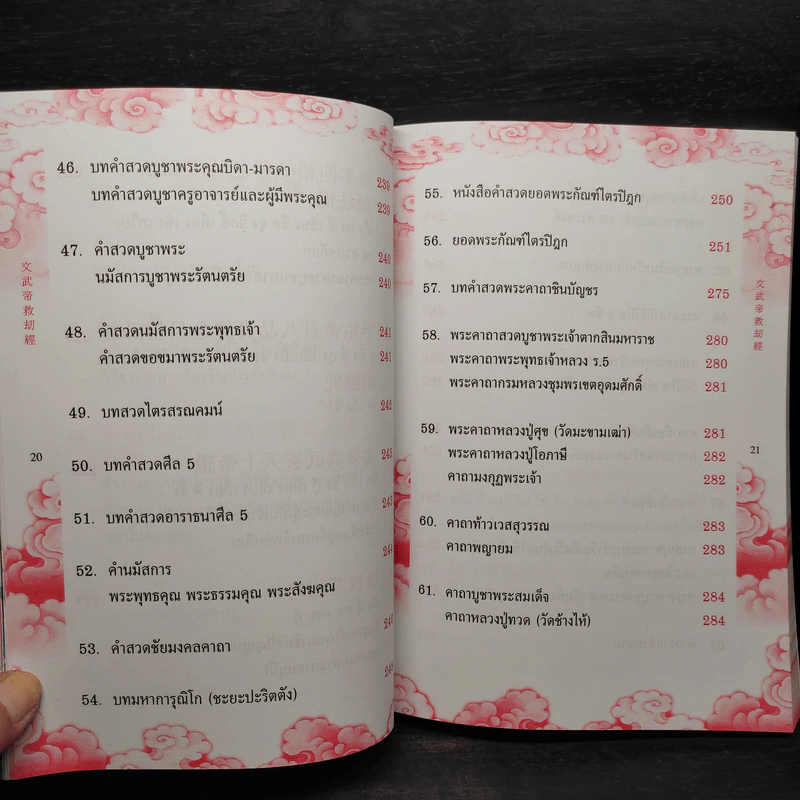 46. บทคำสวดบูชาพระคุณบิดา-มารดา 239
บทคำสวดบูชาครูอาจารย์และผู้มีพระคุณ 239
47. คำสวดบูชาพระ 240
นมัสการบูชาพระรัตนตรัย 240
48. คำสวดนมัสการพระพุทธเจ้า 241
คำสวดขอขมาพระรัตนตรัย 241
49. บทสวดไตรสรณคมน์ 242
50. บทคำสวดศีล 5
51. บทคำสวดอาราธนาศีล 5
52. คำนมัสการ
พระพุทธคุณ พระธรรมคุณ พระสังฆคุณ
53. คำสวดชัยมงคลคาถา
54. บทมหาการุณิโก (ชะยะปะริตตัง)
文武帝救劫經
20
55. หนังสือคำสวดยอดพระกัณฑ์ไตรปิฎก 250
56. ยอดพระกัณฑ์ไตรปิฎก 251
57. บทคำสวดพระคาถาชินบัญชร 275
58. พระคาถาสวดบูชาพระเจ้าตากสินมหาราช 280
พระคาถาพระพุทธเจ้าหลวง ร.5 280
พระคาถากรมหลวงชุมพรเขตอุดมศักดิ์ 281
59. พระคาถาหลวงปู่ศุข (วัดมะขามเฒ่า) 281
พระคาถาหลวงปู่โอภาษี 282
คาถามงกุฎพระเจ้า 282
60. คาถาท้าวเวสสุวรรณ 283
คาถาพญายม 283
61. คาถาบูชาพระสมเด็จ 284
คาถาหลวงปู่ทวด (วัดช้างไห้) 284
文武帝救劫經
21